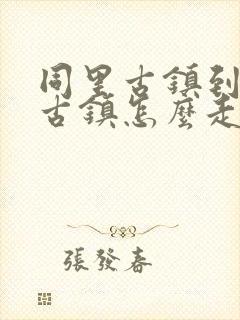 同里古鎮到
古鎮怎麼走
張發春